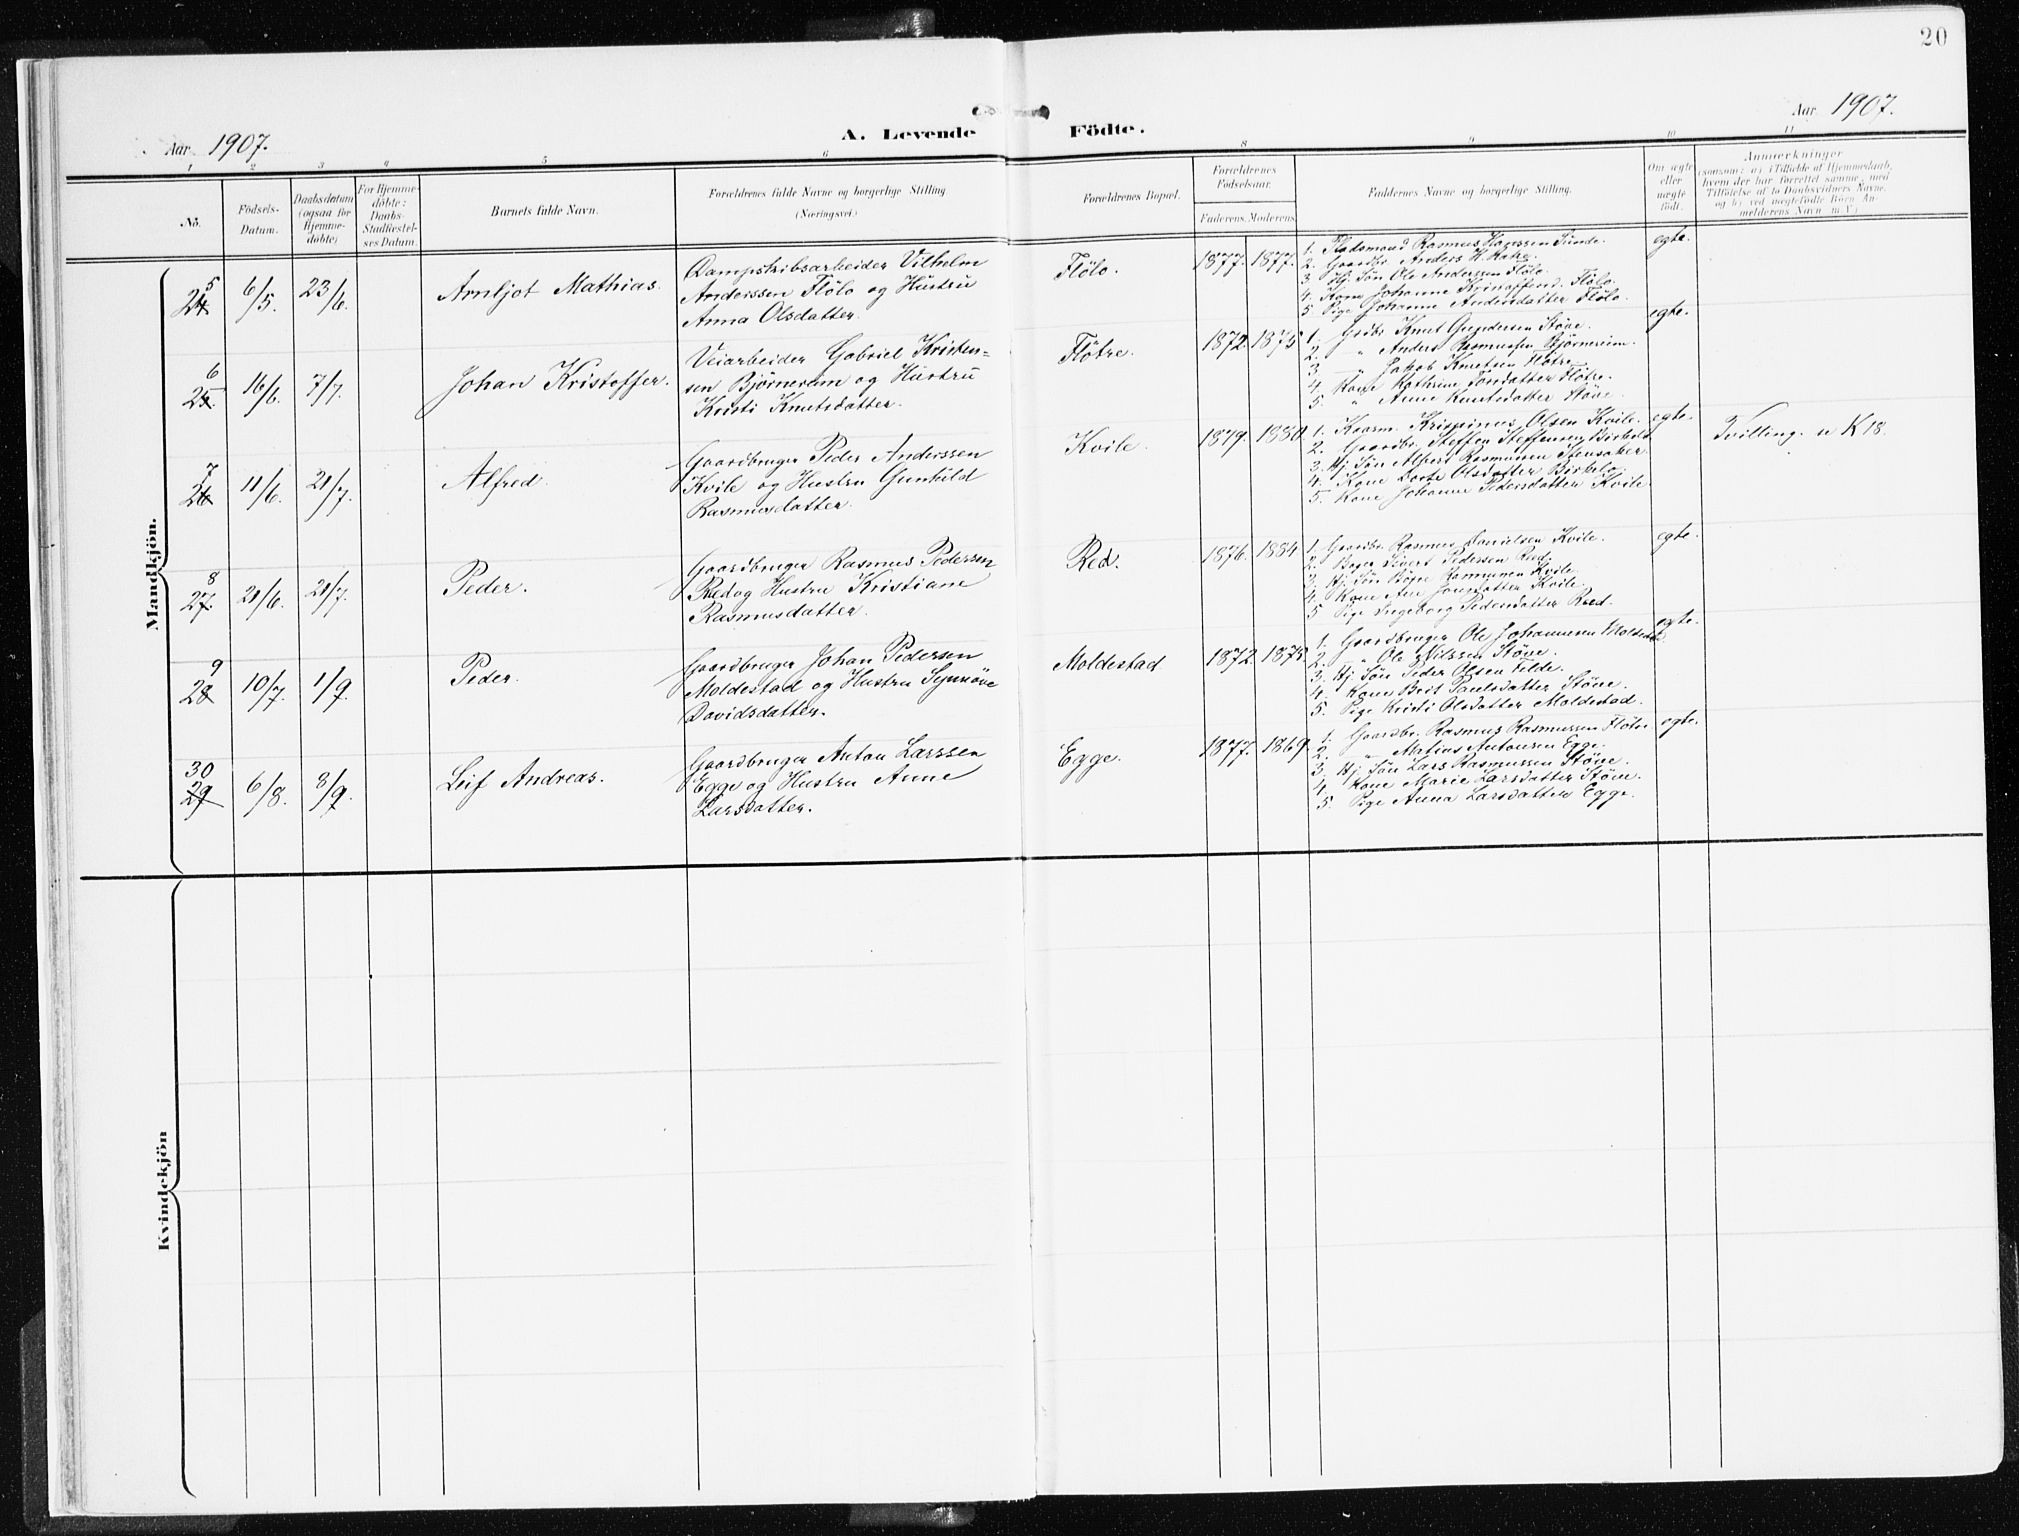 20
Aar 1907.
A. Levende Födte.
Aar 1907.
1 2 3 4 5 6 8 9 10 11
No.
Födsels-
Datum.
Daabsdatum
(ogsaa for
Hjemme-
döbte)
For Hjemme-
döbte:
Daabs-
Stadfæstel-
ses Datum.
Barnets fulde Navn.
Forældrenes fulde Navne og borgerlige Stilling
(Næringsvei.)
Forældrenes Bopæl.
Forældrenes
Födselsaar.
Faderens. Moderens.
Faddernes Navne og borgerlige Stilling.
Om ægte
eller
uægte
födt.
Anmærkninger
(saasom: a) i Tilfælde af Hjemmedaab,
hvem der har forrettet samme, med
Tilföielse af to Daabsvidners Navne,
og b) ved uægtefödte Börn An-
melderens Navn m. V.)
Mandkjön.
5
24
6/5.
23/6.
Arnljot Mathias.
Dampskibsarbeider Vilhelm
Anderssen Flölo og Hustru
Anna Olsdatter.
Flölo.
1877. 1877.
1. Rasmus Hanssen Sunde.
2. Gaardbr. Anders
3. Hj. Søn Ole Anderssen Flölo.
4. Kone Johanne Flölo.
5. Pige Johanne Andersdatter Flölo.
egte.
6
25.
16/6.
7/7.
Johan Kristoffer.
Veiarbeider Gabriel Kristen=
sen Bjørnerem og Hustru
Kristi Knutsdatter.
Flötre.
1872. 1875
1. Grdbr. Knut Gundersen Støve.
2. " Anders Rasmussen Bjørnerem.
3. " Jakob Knutsen Flötre.
4. Kone Kathrine Flötre.
5. " Anne Knutsdatter Støve.
egte.
7
26
11/6.
21/7.
Alfred.
Gaardbruger Peder Anderssen
Kvile og Hustru Gunhild
Rasmusdatter.
Kvile.
1879. 1880.
1. Krispinus Olsen Kvile.
2. Gaardbr. Steffen Steffensen Birkelo.
3. Hj. Søn Albert Rasmussen Stensaker.
4. Kone Dorte Olsdatter Birkelo.
5. Kone Johanne Pedersdatter Kvile.
egte.
Tvilling. n K 18.
8
27.
21/6.
21/7.
Peder.
Gaardbruger Rasmus Pedersen
Red og Hustru Kristiane
Rasmusdatter.
Red.
1876. 1884.
1. Gaardbr. Rasmus Danielsen Kvile.
2. Sivert Pedersen Reed.
3. Hj. Søn Rasmussen Kvile.
4. Kone Ane Jonsdatter Kvile.
5. Pige Ingeborg Pedersdatter Reed.
egte.
9
28
10/7.
1/9.
Peder.
Gaardbruger Johan Pedersen
Moldestad og Hustru Synnöve
Davidsdatter.
Moldestad
1872. 1875.
1. Gaardbruger Ole Johannesen Moldestad
2. " Ole Nilssen Støve.
3. Hj. Søn Peder Olsen Felde.
4. Kone Berit Paulsdatter Støve.
5. Pige Kristi Olsdatter Moldestad.
egte.
30
29
6/8.
8/9.
Leif Andreas.
Gaardbruger Anton Larssen
Egge og Hustru Anne
Larsdatter.
Egge.
1877. 1869.
1. Gaardbr. Rasmus Rasmussen
2. " Matias Antonsen Egge.
3. Hj. Søn Lars Rasmussen Støve.
4. Kone Marie Larsdatter Støve.
5. Pige Anna Larsdatter Egge.
egte.
Kvindekjön